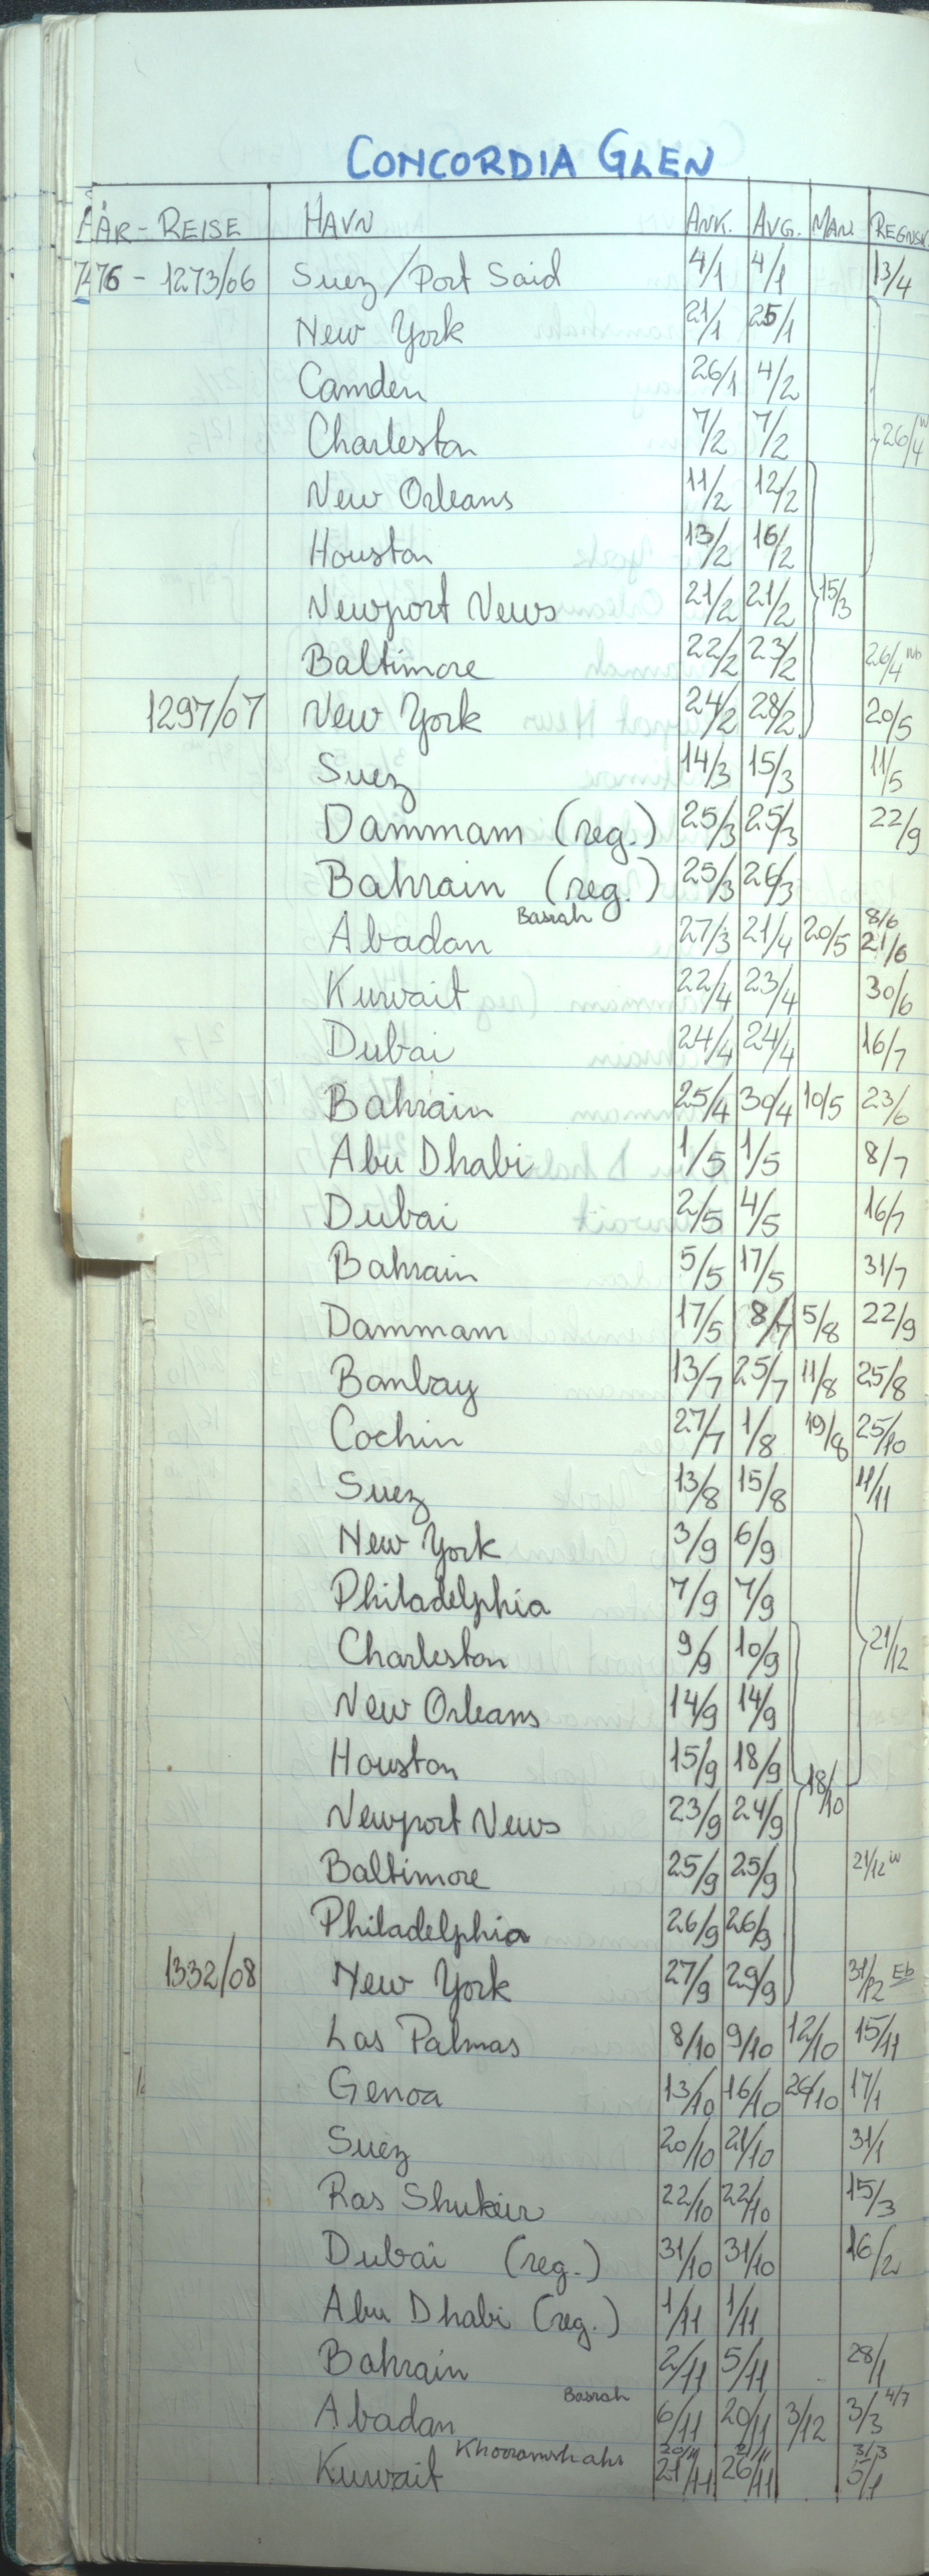 CONCORDIA GLEN
ÅR - REISE HAVN ANK. AVG. MAN. REGNSK
76 - 1273/06 Suez/Port Said 4/1 4/1 13/4
New York 21/1 25/1
Camden 26/1 4/2
Charleston 7/2 7/2 26/4
New Orleans 11/2 12/2
Houston 13/2 16/2
Newport News 21/2 21/2 15/3
Baltimore 22/2 23/2 26/4
1297/07 New York 24/2 28/2 20/5
Suez 14/3 15/3 11/5
Dammam (reg.) 25/3 25/3 22/9
Bahrain (reg.) 25/3 26/3
Basrah 8/6
Abadan 27/3 21/4 20/5 21/6
Kuwait 22/4 23/4 30/6
Dubai 24/4 24/4 16/7
Bahrain 25/4 30/4 10/5 23/6
Abu Dhabi 1/5 1/5 8/7
Dubai 2/5 4/5 16/7
Bahrain 5/5 17/5 31/7
Dammam 17/5 8/7 5/8 22/9
Bombay 13/7 25/7 11/8 25/8
Cochin 27/7 1/8 19/8 25/10
Suez 13/8 15/8 11/11
New York 3/9 6/9
Philadelphia 7/9 7/9
Charleston 9/9 10/9 21/12
New Orleans 14/9 14/9
Houston 15/9 18/9 18/10
Newport News 23/9 24/9
Baltimore 25/9 25/9 21/12
Philadelphia 26/9 26/9
1332/08 New York 27/9 29/9 31/12 Eb
Las Palmas 8/10 9/10 12/10 15/11
Genoa 13/10 16/10 26/10 17/1
Suez 20/10 21/10 31/1
Ras Shukeir 22/10 22/10 15/3
Dubai (reg.) 31/10 31/10 16/2
Abu Dhabi (reg.) 1/11 1/11
Bahrain 2/11 5/11 28/1
Basrah
Abadan 6/11 20/11 3/12 3/3 4/7
Khorramshahr 20/11 21/11 3/3
Kuwait 21/11 26/11 5/1